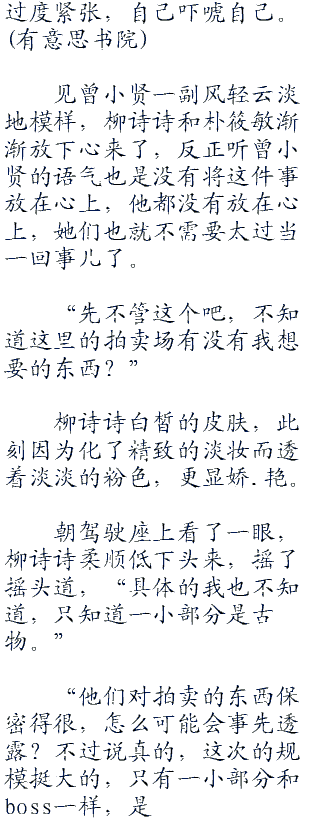 过度紧张，自己吓唬自己。
(有意思书院)
见曾小贤一副风轻云淡
地模样，柳诗诗和朴筱敏渐
渐放下心来了，反正听曾小
贤的语气也是没有将这件事
放在心上，他都没有放在心
上，她们也就不需要太过当
一回事儿了。
“先不管这个吧，不知
道这里的拍卖场有没有我想
要的东西？”
柳诗诗白皙的皮肤，此
刻因为化了精致的淡妆而透
着淡淡的粉色，更显娇.艳。
朝驾驶座上看了一眼，
柳诗诗柔顺低下头来，摇了
摇头道，“具体的我也不知
道，只知道一小部分是古
物。”
“他们对拍卖的东西保
密得很，怎么可能会事先透
露？不过说真的，这次的规
模挺大的，只有一小部分和
boss一样，是